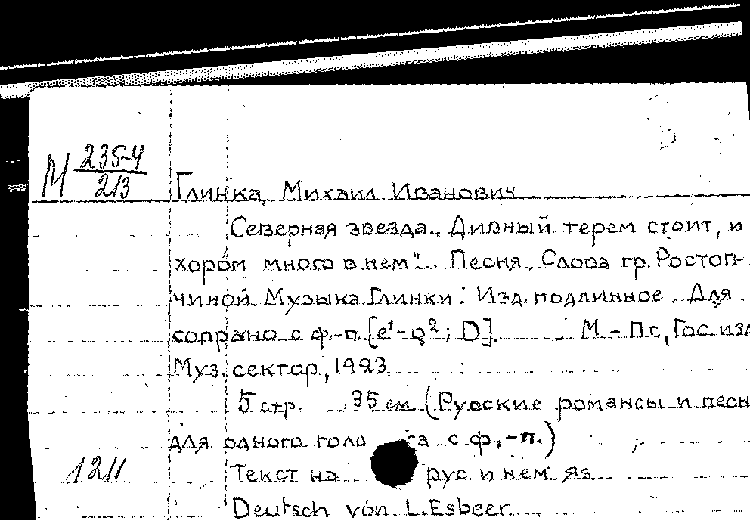 М 235-4
213
Глинка, Михаил Иванович
Северная звезда. „Дивный терем стоит, и
хором много в нем". Песня. Слова гр. Ростоп-
чиной. Музыка Глинки. Изд. подлинное. Для
сопрано с ф.-п. [e¹-g²; D]. М.-Пг, Гос. изд
Муз. сектор, 1923
5 стр. 35 см (Русские романсы и песн
для одного голо са с ф.-п.)
1211 Текст на рус и нем яз
Deutsch von L. Esbeer